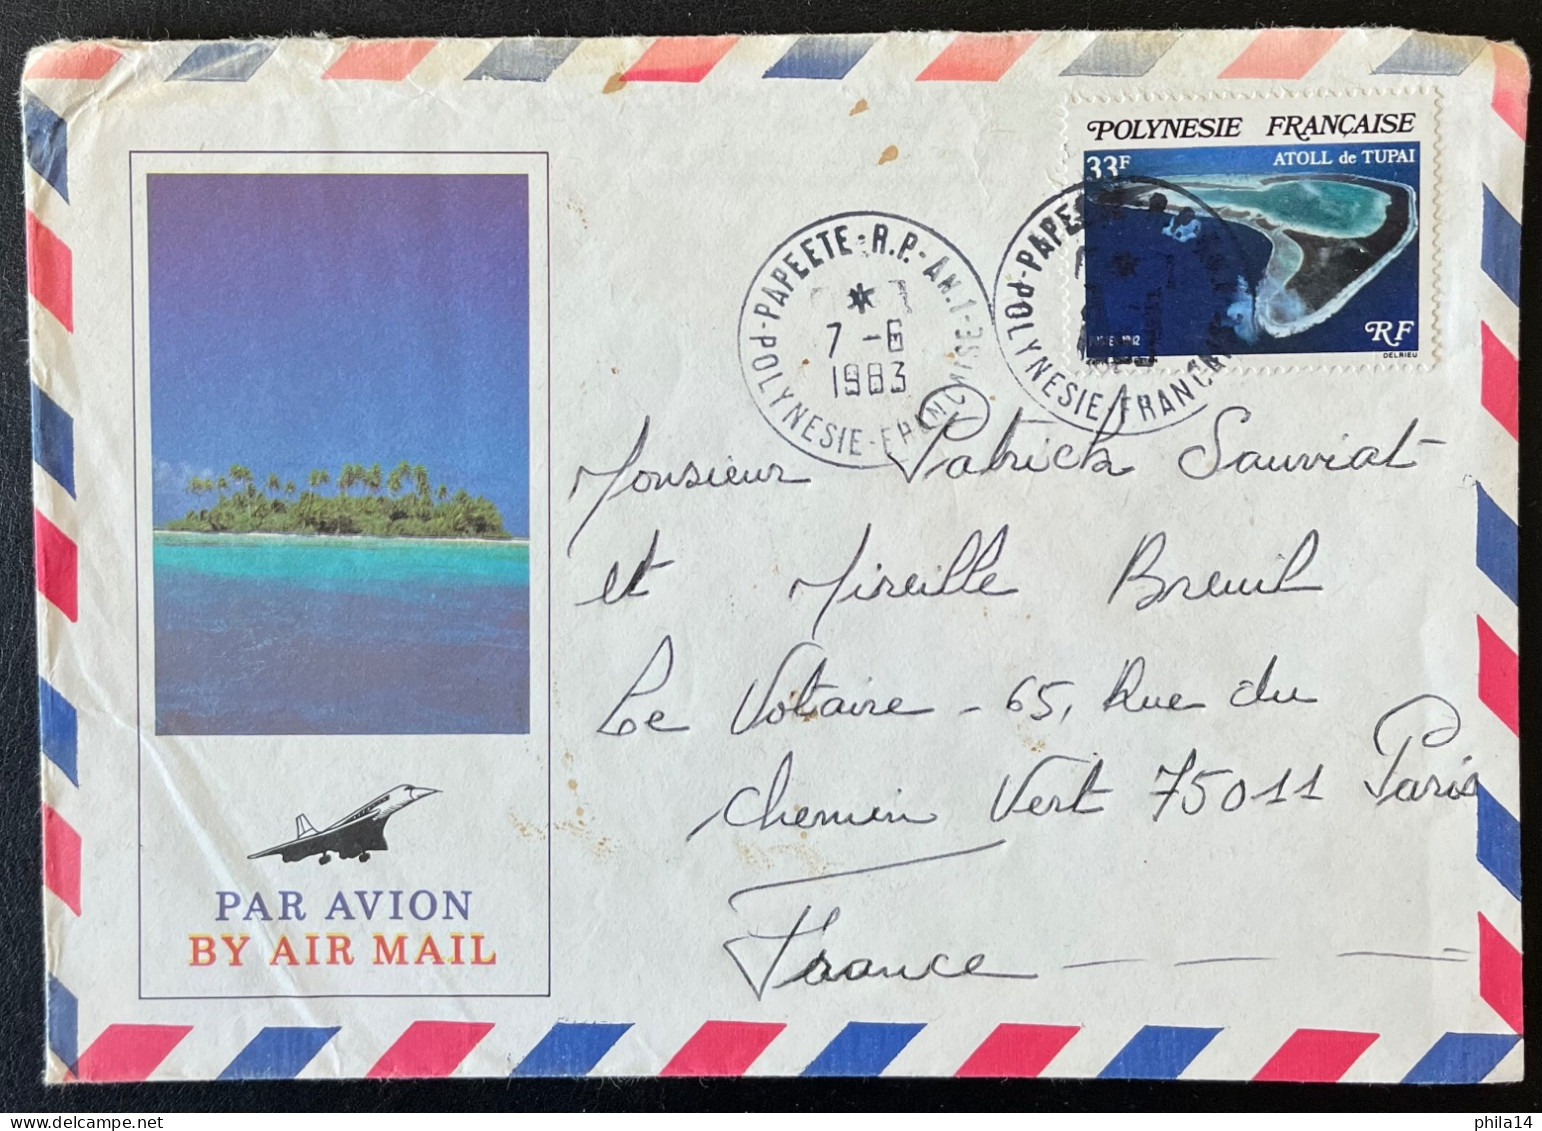 POLYNESIE FRANÇAISE
33F ATOLL de TUPAI
RF
DELRIEU
PAPEETE-R.P.-AN.1-
*
7 -6
1983
POLYNESIE-FRANCAISE
POLYNESIE-FRANCAISE-PAPE
Monsieur Patrick Sauviat
et Mireille Breuil
Le Voltaire - 65, Rue du
Chemin Vert 75011 Paris
France
PAR AVION
BY AIR MAIL
phila14